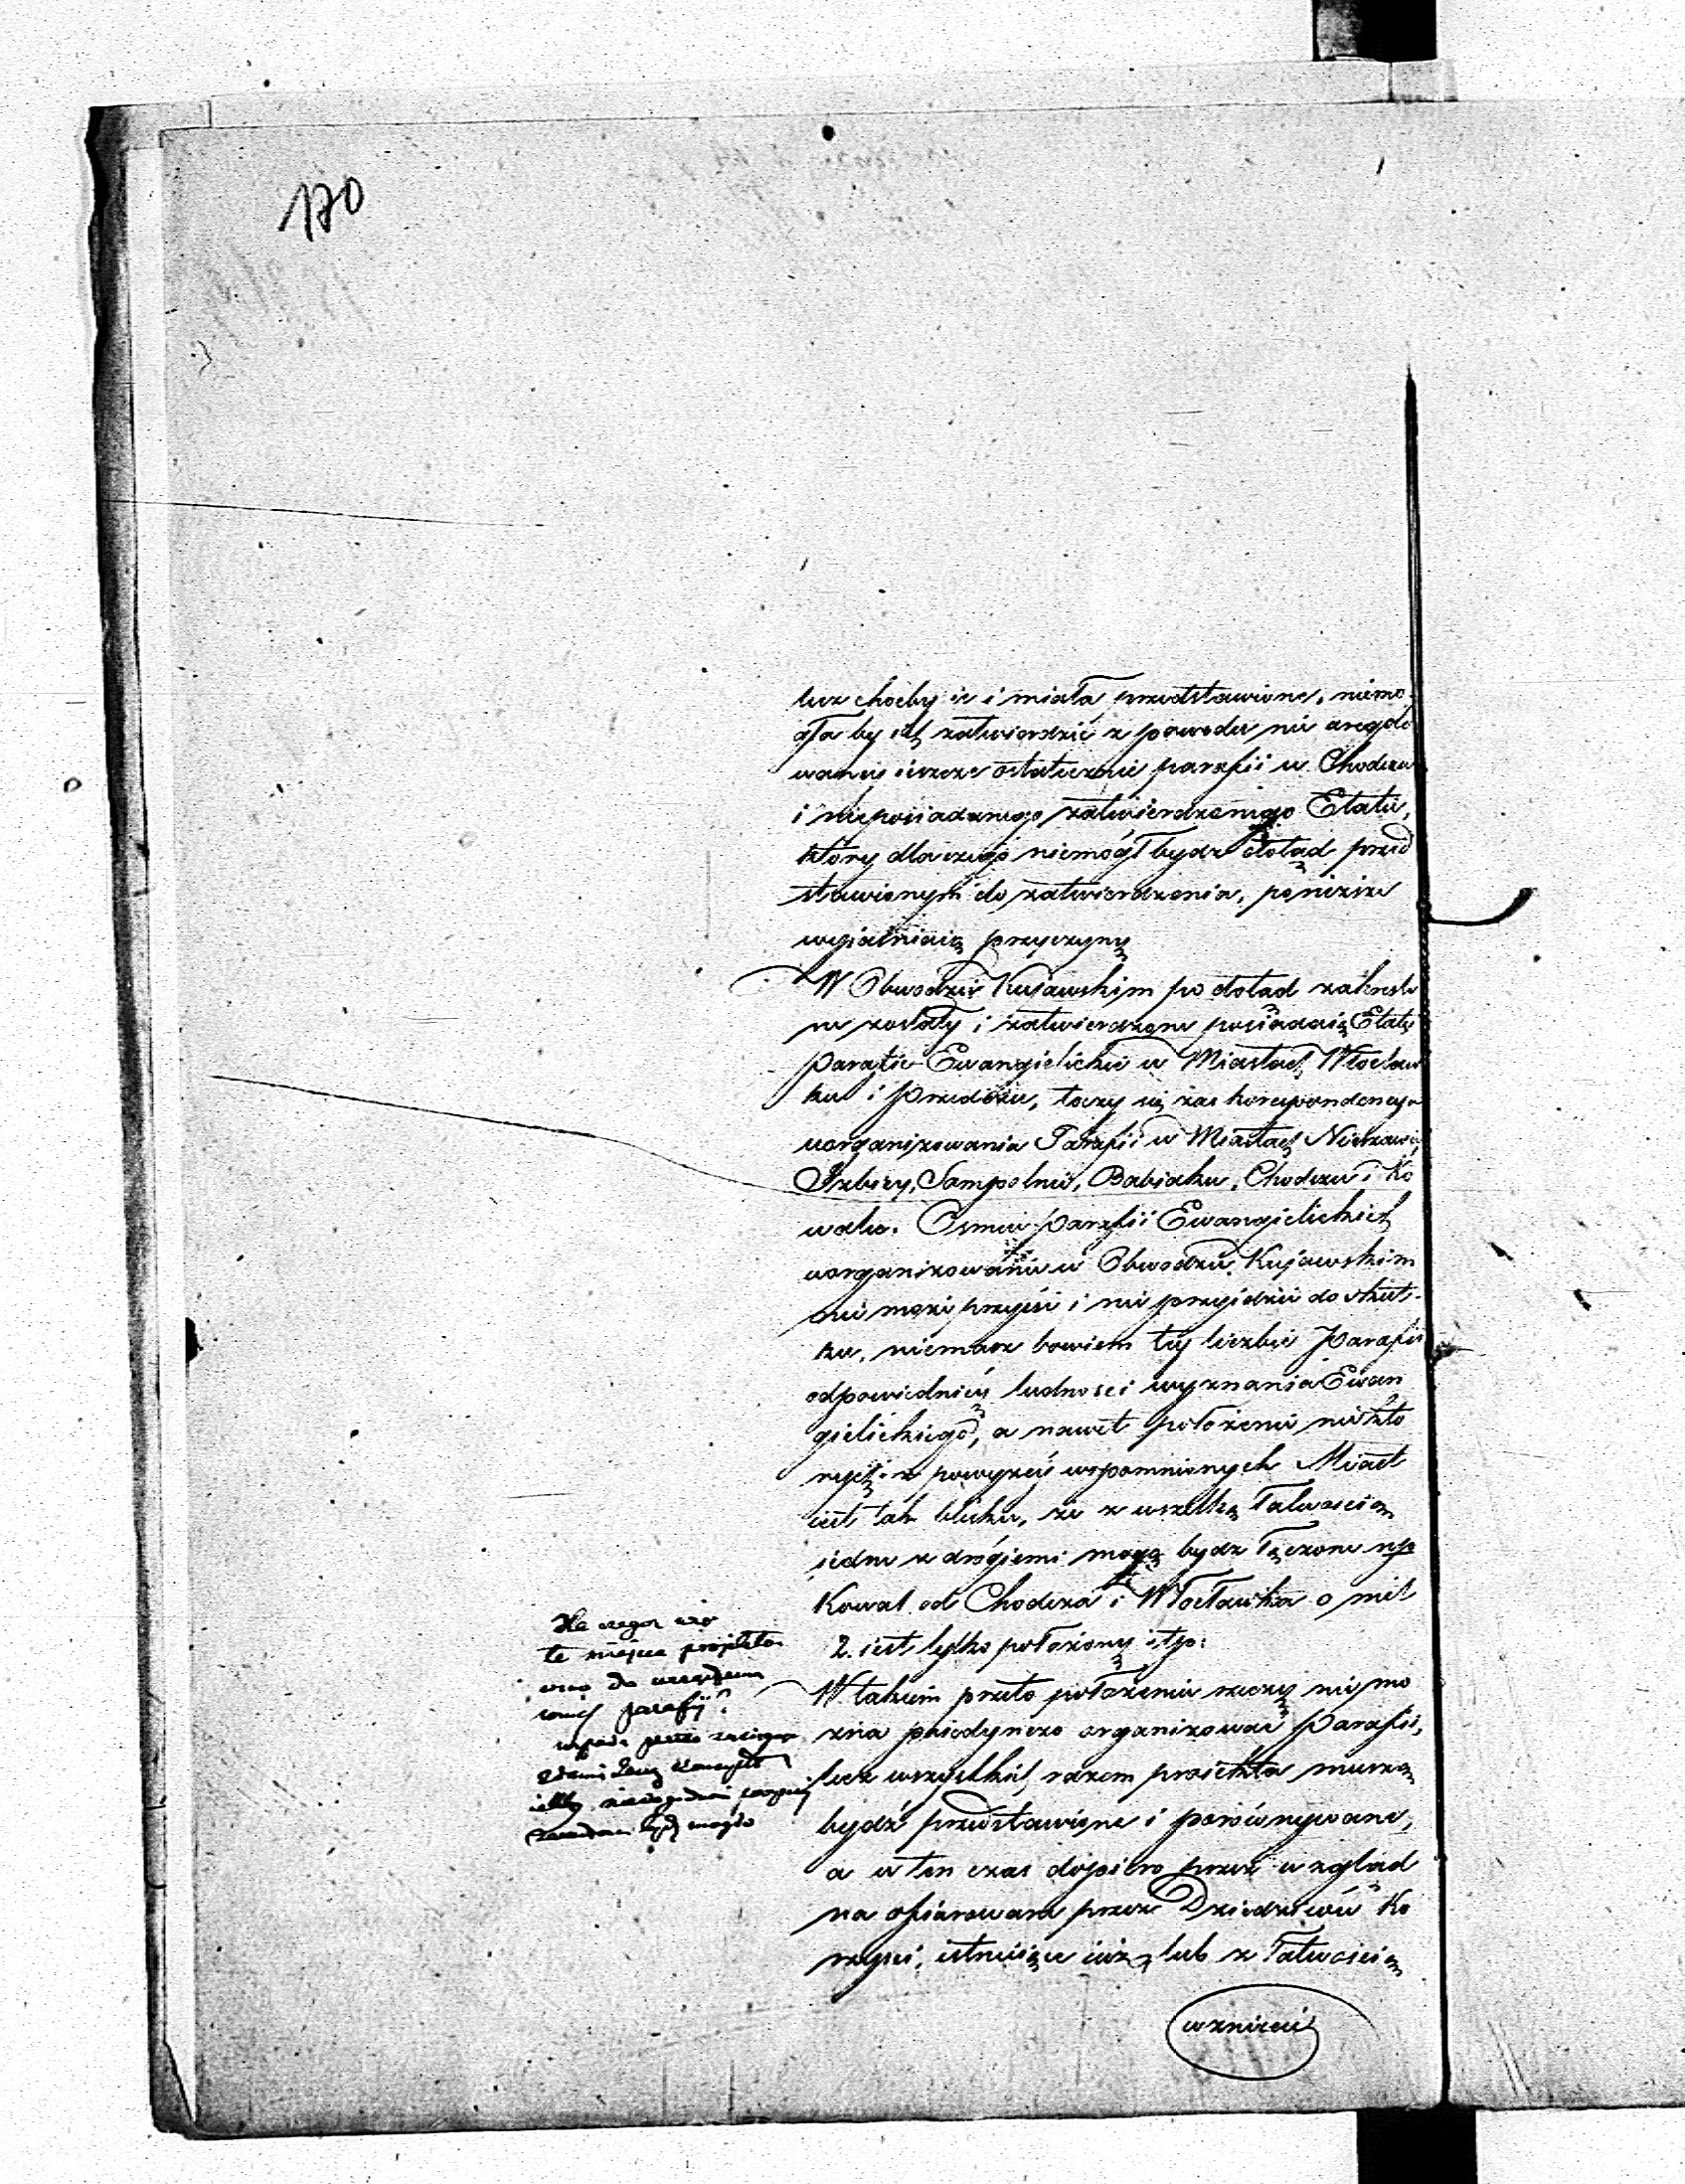 170
lecz choćby ie i miała przedstawione, niemo-
gła by ich zatwierdzić z powodu nie uregulo
waney ieszcze ostatecznie parafii w Chodczu
i nieposiadanego zatwierdzonego Etatu,
który dla czego niemógł bydz dotąd przed
stawionym do zatwierdzenia, poniższe
wyiaśniaią przyczyny
W Obwodzie Kujawskim po dotąd zakreślo
ne zostały i zatwierdzone posiadaią Etaty
Parafie Ewangielickie w Miastach Włocław
ku i Przedczu, toczy się zaś korespondencya
uorganizowania Parafii w Miastach Nieszawie,
Izbicy, Sampolnie, Babiaku, Chodczu i Ko
walu. Osmiu parafii Ewangielickich
uorganizowanie w Obwodzie Kujawskim
nie może przyiść i nie przyidzie do skut-
ku, niemasz bowiem tey liczbie Parafii
odpowiedniey ludności wyznania Ewan
gielickiego, a nawet położenie niektó
rych z powyżey wspomnionych Miast
iest tak blizkie, że z wszelką łatwością
iedne z drógiemi mogą bydz łączone np
Kowal od Chodcza i Włocławka o mil
2. iest tylko położony itp:
W takim przeto położeniu rzeczy nie mo
żna poiedynczo organizować Parafii,
lecz wszystkich razem proiekta muszą
bydź przedstawione i porównywane,
a w ten czas dopiero przez wzgląd
na ofiarowane przez Dziedziców Ko
rzyści, istnieiące iuż lub z łatwością
wznieść
Dla czegoż więc
te miejsca projekto
wano do urządzenia
parafij?